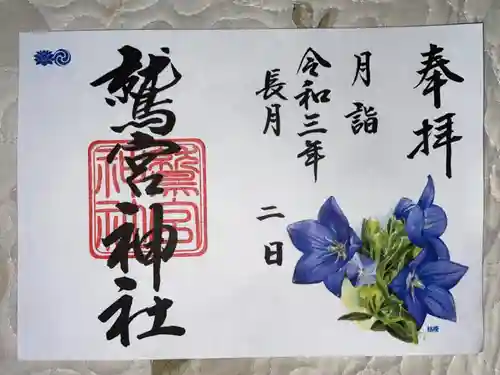 奉拝
月詣
令和三年
長月
二日
鷲宮神社
鷲宮
神社
桔梗